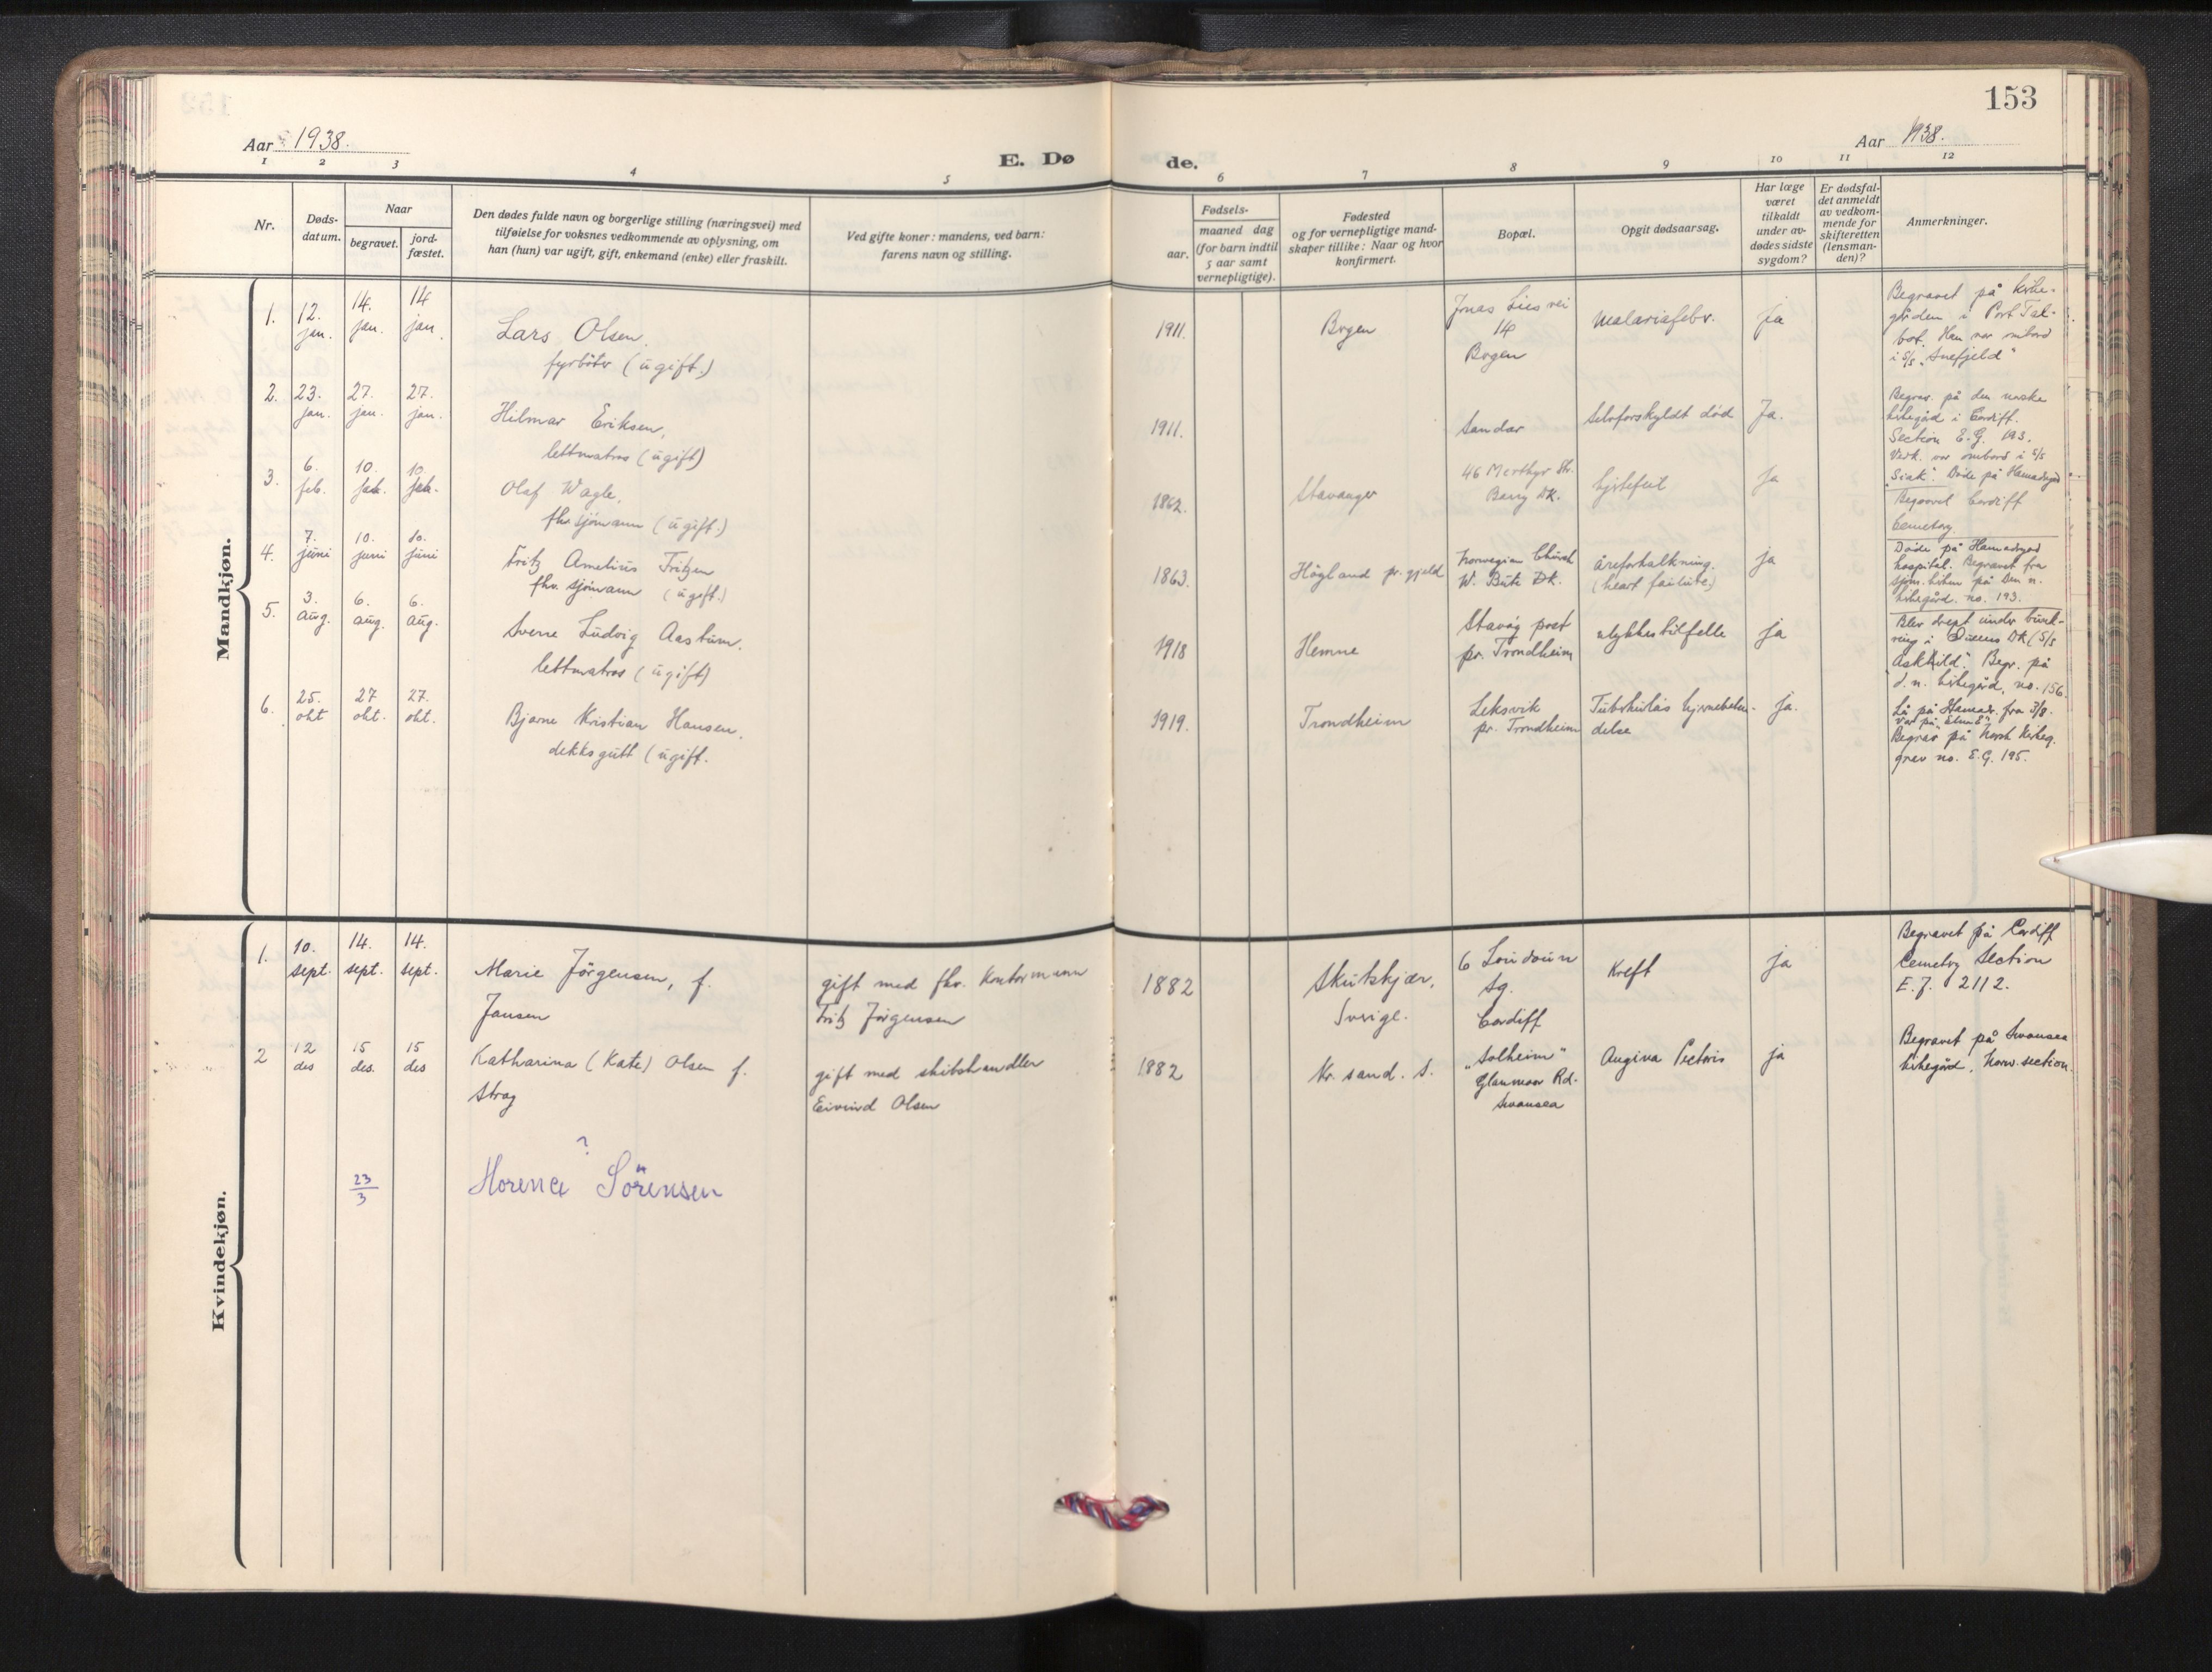 153
Aar 1938.
Aar 1938.
E. Dø
de.
1 2 3 4 5 6 7 8 9 10 11 12
Nr.
Døds-
datum.
Naar
begravet.
jord-
fæstet.
Den dødes fulde navn og borgerlige stilling (næringsvei) med
tilføielse for voksnes vedkommende av oplysning, om
han (hun) var ugift, gift, enkemand (enke) eller fraskilt.
Ved gifte koner: mandens, ved barn:
farens navn og stilling.
Fødsels-
aar.
maaned dag
(for barn indtil
5 aar samt
vernepligtige).
Fødested
og for vernepligtige mand-
skaper tillike: Naar og hvor
konfirmert.
Bopæl.
Opgit dødsaarsag.
Har læge
været
tilkaldt
under av-
dødes sidste
sygdom?
Er dødsfal-
det anmeldt
av vedkom-
mende for
skifteretten
(lensman-
den)?
Anmerkninger.
Mandkjøn.
1.
12.
jan.
14.
jan.
14
jan.
Lars Olsen.
fyrbøter (ugift.)
1911.
Bergen
Jonas Lies vei
14
Bergen
Malariafeber.
ja
Begravet på kirke-
gården i Port Tal-
bot. Han var ombord
i S/S "Snefjeld"
2.
23.
jan.
27.
jan.
27.
jan.
Hilmar Eriksen,
lettmatros (ugift)
1911.
Sandar
Selvforskyldt død
Ja.
Begrav. på den norske
kirkegård i Cardiff.
Section E.G. 193.
Vedk. var ombord i S/S
"Siak". Døde på Hamadryad
3.
6.
feb.
10.
feb.
10.
feb.
Olaf Wagle,
fhv sjømann (ugift.)
1862.
Stavanger
46 Merthyr Str.
Barry Dk.
hjertefeil
ja
Begravet Cardiff
Cemetery
4.
7.
juni
10.
juni
10.
juni
Fritz Amelius Fritzen
fhv. sjømann (ugift.)
1863.
Högland pr.gjeld
Norwegian Church
W. Bute Dk.
åreforkalkning.
(heart failure)
ja
Døde på Hamadryad
hospital. Begravet fra
sjøm.kirken på Den n.
kirkegård. no. 193.
5.
3.
aug.
6.
aug.
6.
aug.
Sverre Ludvig Aastum.
lettmatros (ugift)
1918
Hemne
Stavåg post
pr. Trondheim
ulykkestilfelle
ja
Blev drept under bunk-
ring i Queens Dk (S/S
"Askhild". Begr. på
d. n. kirkegård, no. 156.
6.
25.
okt
27
okt.
27.
okt.
Bjarne Kristian Hansen.
dekksgutt (ugift.
1919.
Trondheim
Leksvik
pr. Trondheim
Tuberkuløs hjernebeten-
delse
ja.
Lå på Hamadr. fra 3/8.
Var på
Begrav på Norsk Kirkeg.
grav no. E.G. 195.
Kvindekjøn.
1.
10.
sept.
14.
sept.
14.
sept.
Marie Jörgensen, f.
Jansen
gift med fhv. Kontormann
Fritz Jörgensen
1882
Skutskjær,
Sverige.
6 Loudoun
Sq.
Cardiff
Kreft
ja
Begravet på Cardiff
Cemetry Section
E.J. 2112.
2
12
des
15
des.
15
des
Katharina (Kate) Olsen f.
Stray
gift med skibshandler
Eivind Olsen
1882
Kr.sand. S.
"Solheim"
Glanmor Rd.
Swansea
Angina Pectoris
ja
Begravet på Swansea
kirkegård, Norw. section.
23
3
?
Florence Sörensen